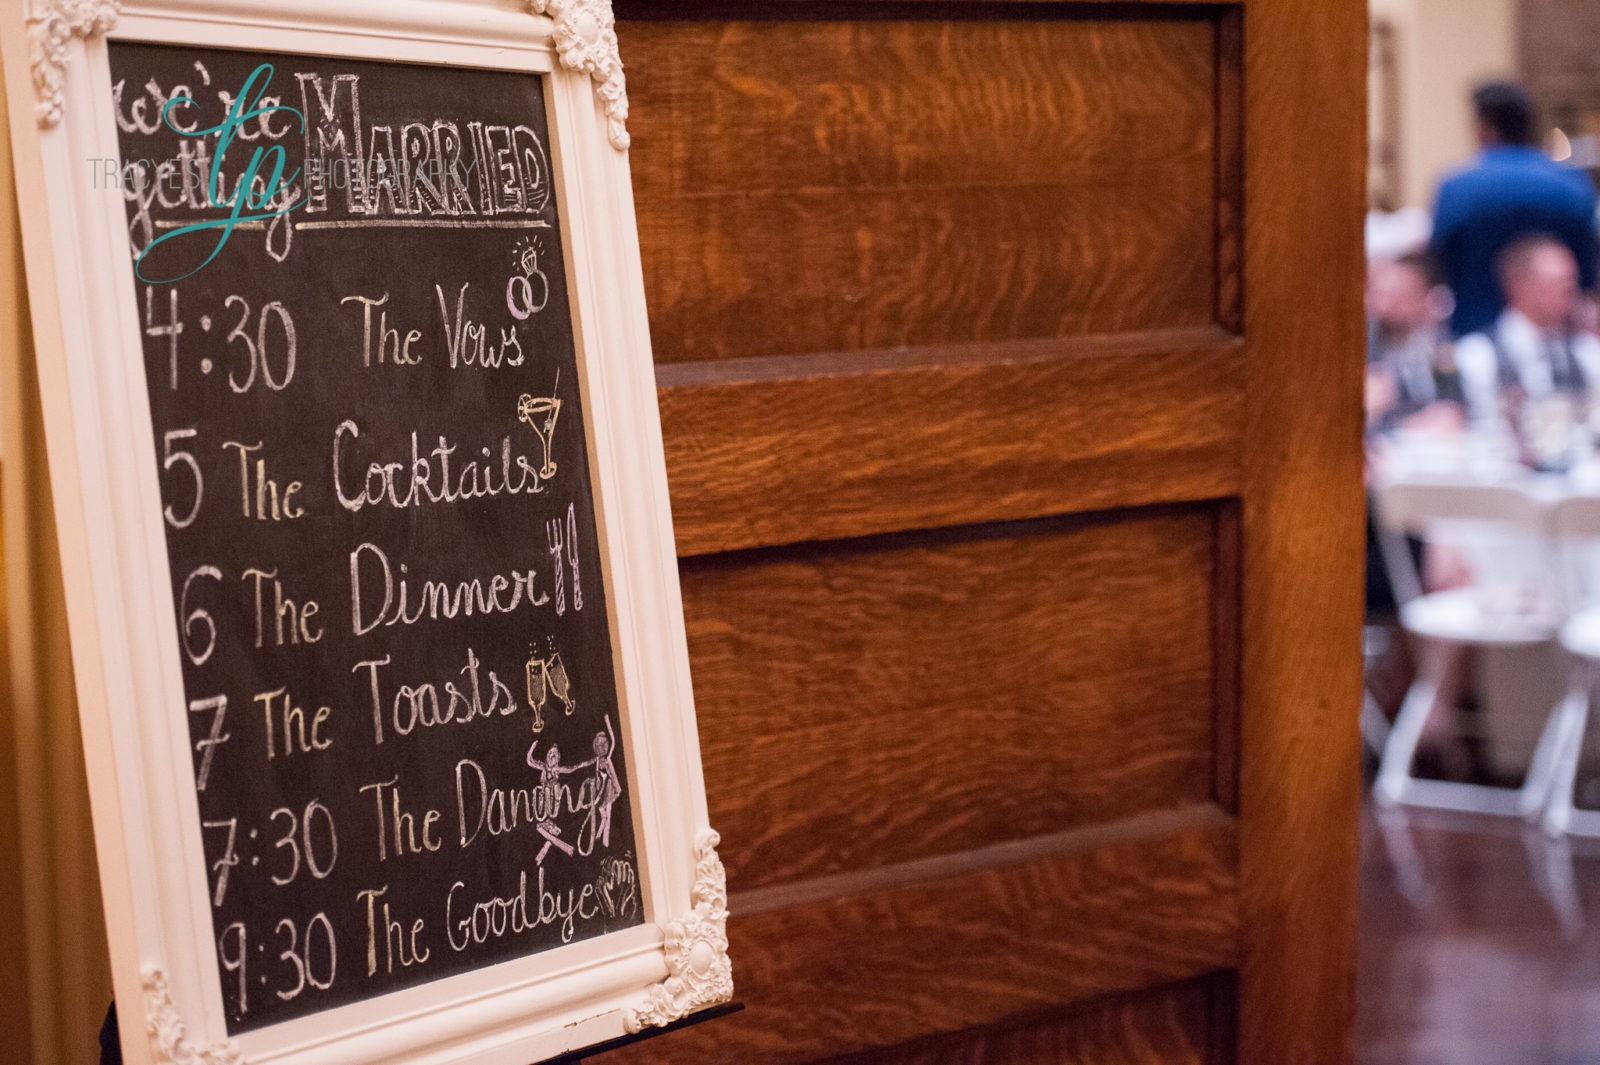 we're
getting MARRIED
TRACYES tp PHOTOGRAPHY
4:30 The Vows
5 The Cocktails
6 The Dinner
7 The Toasts
7:30 The Dancing
9:30 The Goodbye